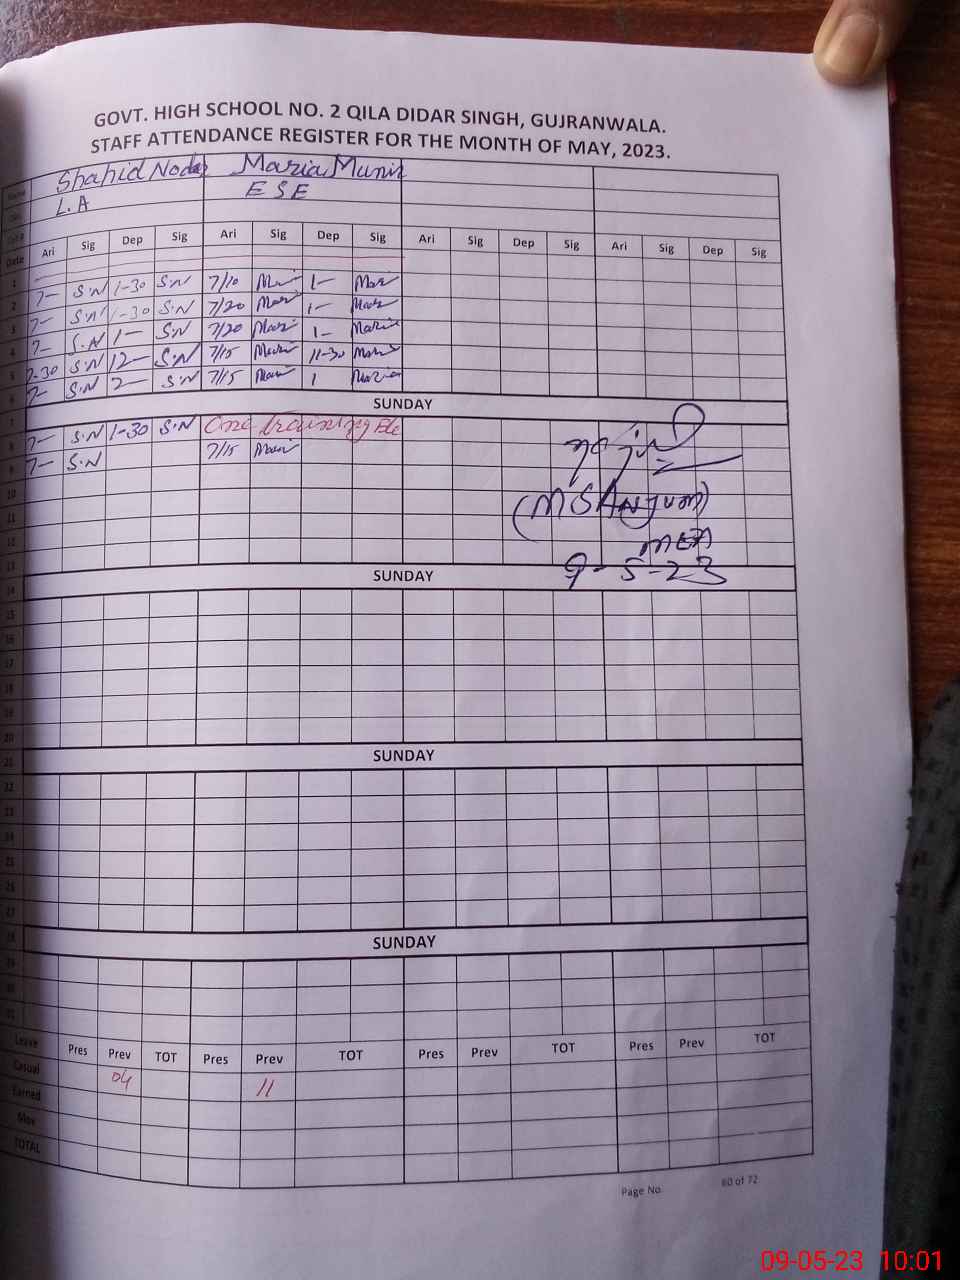 GOVT. HIGH SCHOOL NO. 2 QILA DIDAR SINGH, GUJRANWALA.
STAFF ATTENDANCE REGISTER FOR THE MONTH OF MAY, 2023.
Shahid Maria Munir
L.A ESE
Ari Sig Dep Sig Ari Sig Dep Sig Ari Sig Dep Sig Ari Sig Dep Sig
1
2 7- S.N 1-30 S.N 7/10 1-
3 7- S.N 1-30 S.N 7/20 1-
4 7- S.N 1- S.N 7/20 1- Maria
5 7-30 S.N 12- S.N 7/15 11-30
6 7- S.N 2- S.N 7/15 1 Maria
7 SUNDAY
8 7- S.N 1-30 S.N One training
9 7- S.N 7/15
10
11
12
13
(MSAnjum)
MEA
9-5-23
14 SUNDAY
15
16
17
18
19
20
21 SUNDAY
22
23
24
25
26
27
28 SUNDAY
29
30
31
Leave Pres Prev TOT Pres Prev TOT Pres Prev TOT Pres Prev TOT
Casual 04 11
Earned
TOTAL
Page No. 60 of 72
09-05-23 10:01